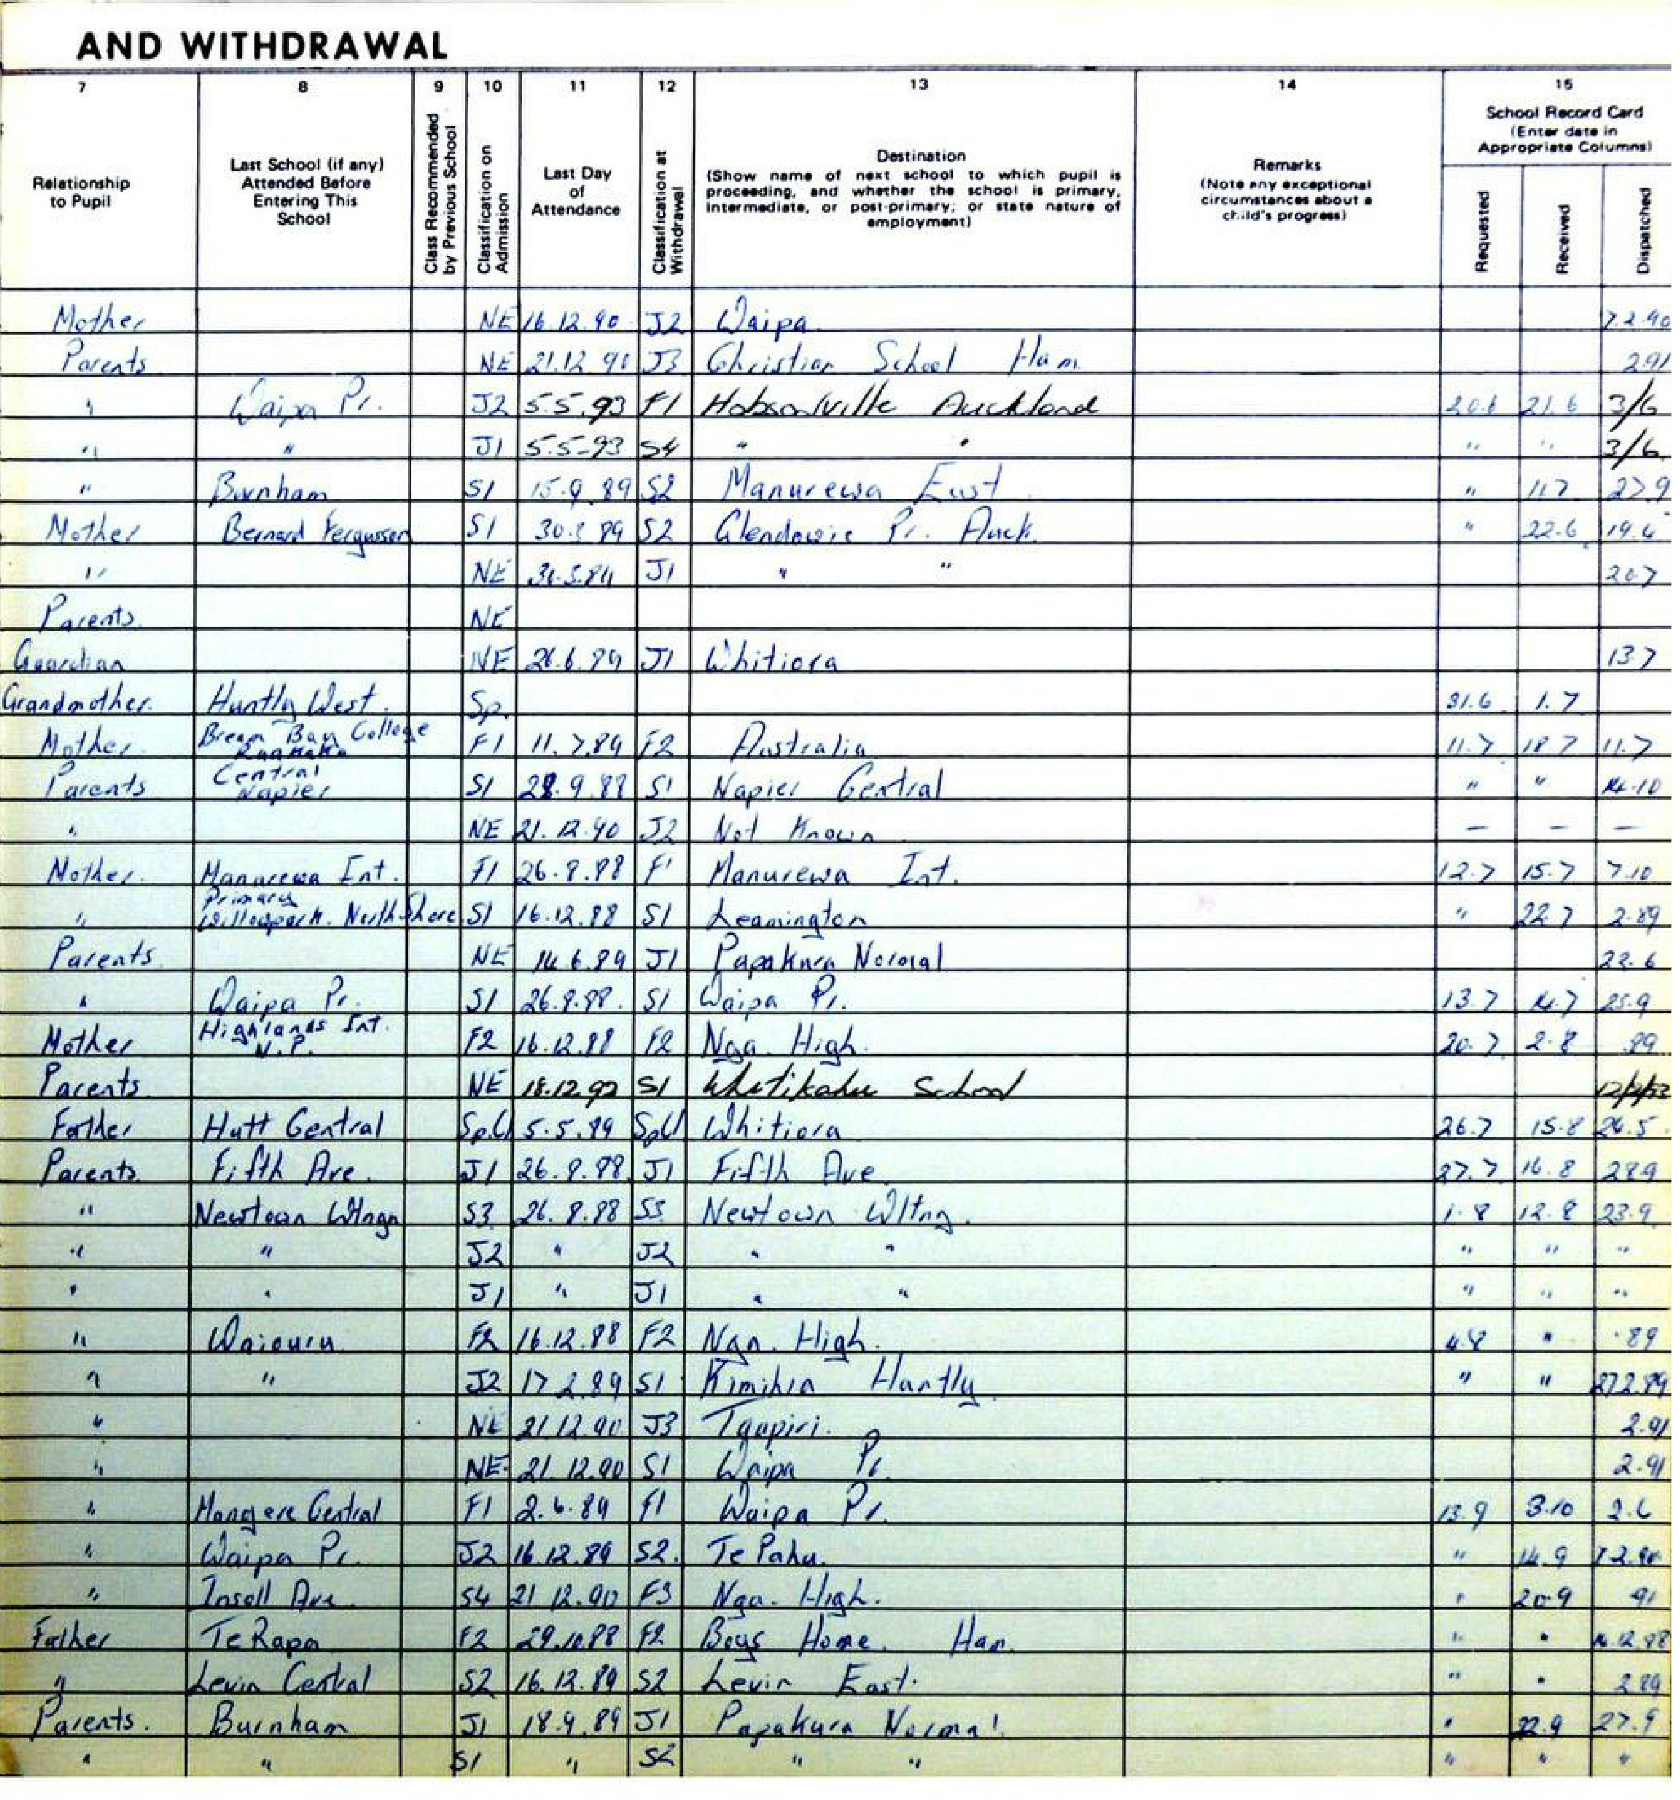 AND WITHDRAWAL
7 8 9 10 11 12 13 14 15
Relationship to Pupil
Last School (if any) Attended Before Entering This School
Class Recommended by Previous School
Classification on Admission
Last Day of Attendance
Classification at Withdrawal
Destination (Show name of next school to which pupil is proceeding, and whether the school is primary, intermediate, or post-primary; or state nature of employment)
Remarks (Note any exceptional circumstances about a child's progress)
School Record Card (Enter date in Appropriate Columns)
Requested Received Dispatched
Mother NE 16.12.90 J2 Waipa 7.2.90
Parents NE 21.12.90 J3 Christian School Ham. 2.91
" Waipa Pr. J2 5.5.93 F1 Hobsonville Auckland 20.6 21.6 3/6
" " J1 5.5-93 S4 " " " " 3/6
" Burnham S1 15.9.89 S2 Manurewa East " 11.7 27.9
Mother Bernard Fergusson S1 30.3.89 S2 Glendowie Pr. Auck. " 22.6 19.4
" NE J1 " " 20.7
Parents NE
Guardian NE 26.6.89 J1 Whitiora 13.7
Grandmother. Huntly West. Sp. 31.6 1.7
Mother. Bream Bay College Ruakaka F1 11.7.89 F2 Australia 11.7 18.7 11.7
Parents Central Napier S1 28.9.88 S1 Napier Central " " 14.10
" NE 21.12.90 J2 Not Known — — —
Mother. Manurewa Int. F1 26.8.88 F1 Manurewa Int. 12.7 15.7 7.10
" Primary Willowpark. North Shore S1 16.12.88 S1 Leamington " 22.7 2.89
Parents NE 14.6.89 J1 Papakura Normal 23.6
" Waipa Pr. S1 26.8.88. S1 Waipa Pr. 13.7 14.7 25.9
Mother Highlands Int. N.P. F2 16.12.88 F2 Nga. High. 20.7 2.8 .89
Parents NE 18.12.92 S1 Whatikahu School
Father Hutt Central Sp.Cl 5.5.89 SpCl Whitiora 26.7 15.8 24.5
Parents Fifth Ave. J1 26.8.88 J1 Fifth Ave. 27.7 16.8 28.9
" Newtown Wltngn S3 26.8.88 S3 Newtown Wltng. 1.8 12.8 23.9
" " J2 " J2 " " " " "
" " J1 " J1 " " " " "
" Waiouru F2 16.12.88 F2 Nga. High. 4.8 " .89
" " J2 17.2.89 S1 Kimihia Huntly " " 27.2.89
" NE 21.12.90 J3 Taupiri. 2.91
" NE. 21.12.90 S1 Waipa Pr. 2.91
" Mangere Central F1 2.6.89 F1 Waipa Pr. 13.9 3.10 2.6
" Waipa Pr. J2 16.12.89 S2. Te Pahu. " 14.9
" Insoll Ave. S4 21.12.90 F3 Nga. High. " 20.9 91
Father Te Rapa F2 29.10.88 F2 Boys Home. Ham. " " 14.12.88
" Levin Central S2 16.12.89 S2 Levin East. " " 2.89
Parents. Burnham J1 18.9.89 J1 Papakura Normal " 22.9 27.9
" " S1 " S2 " " " " "